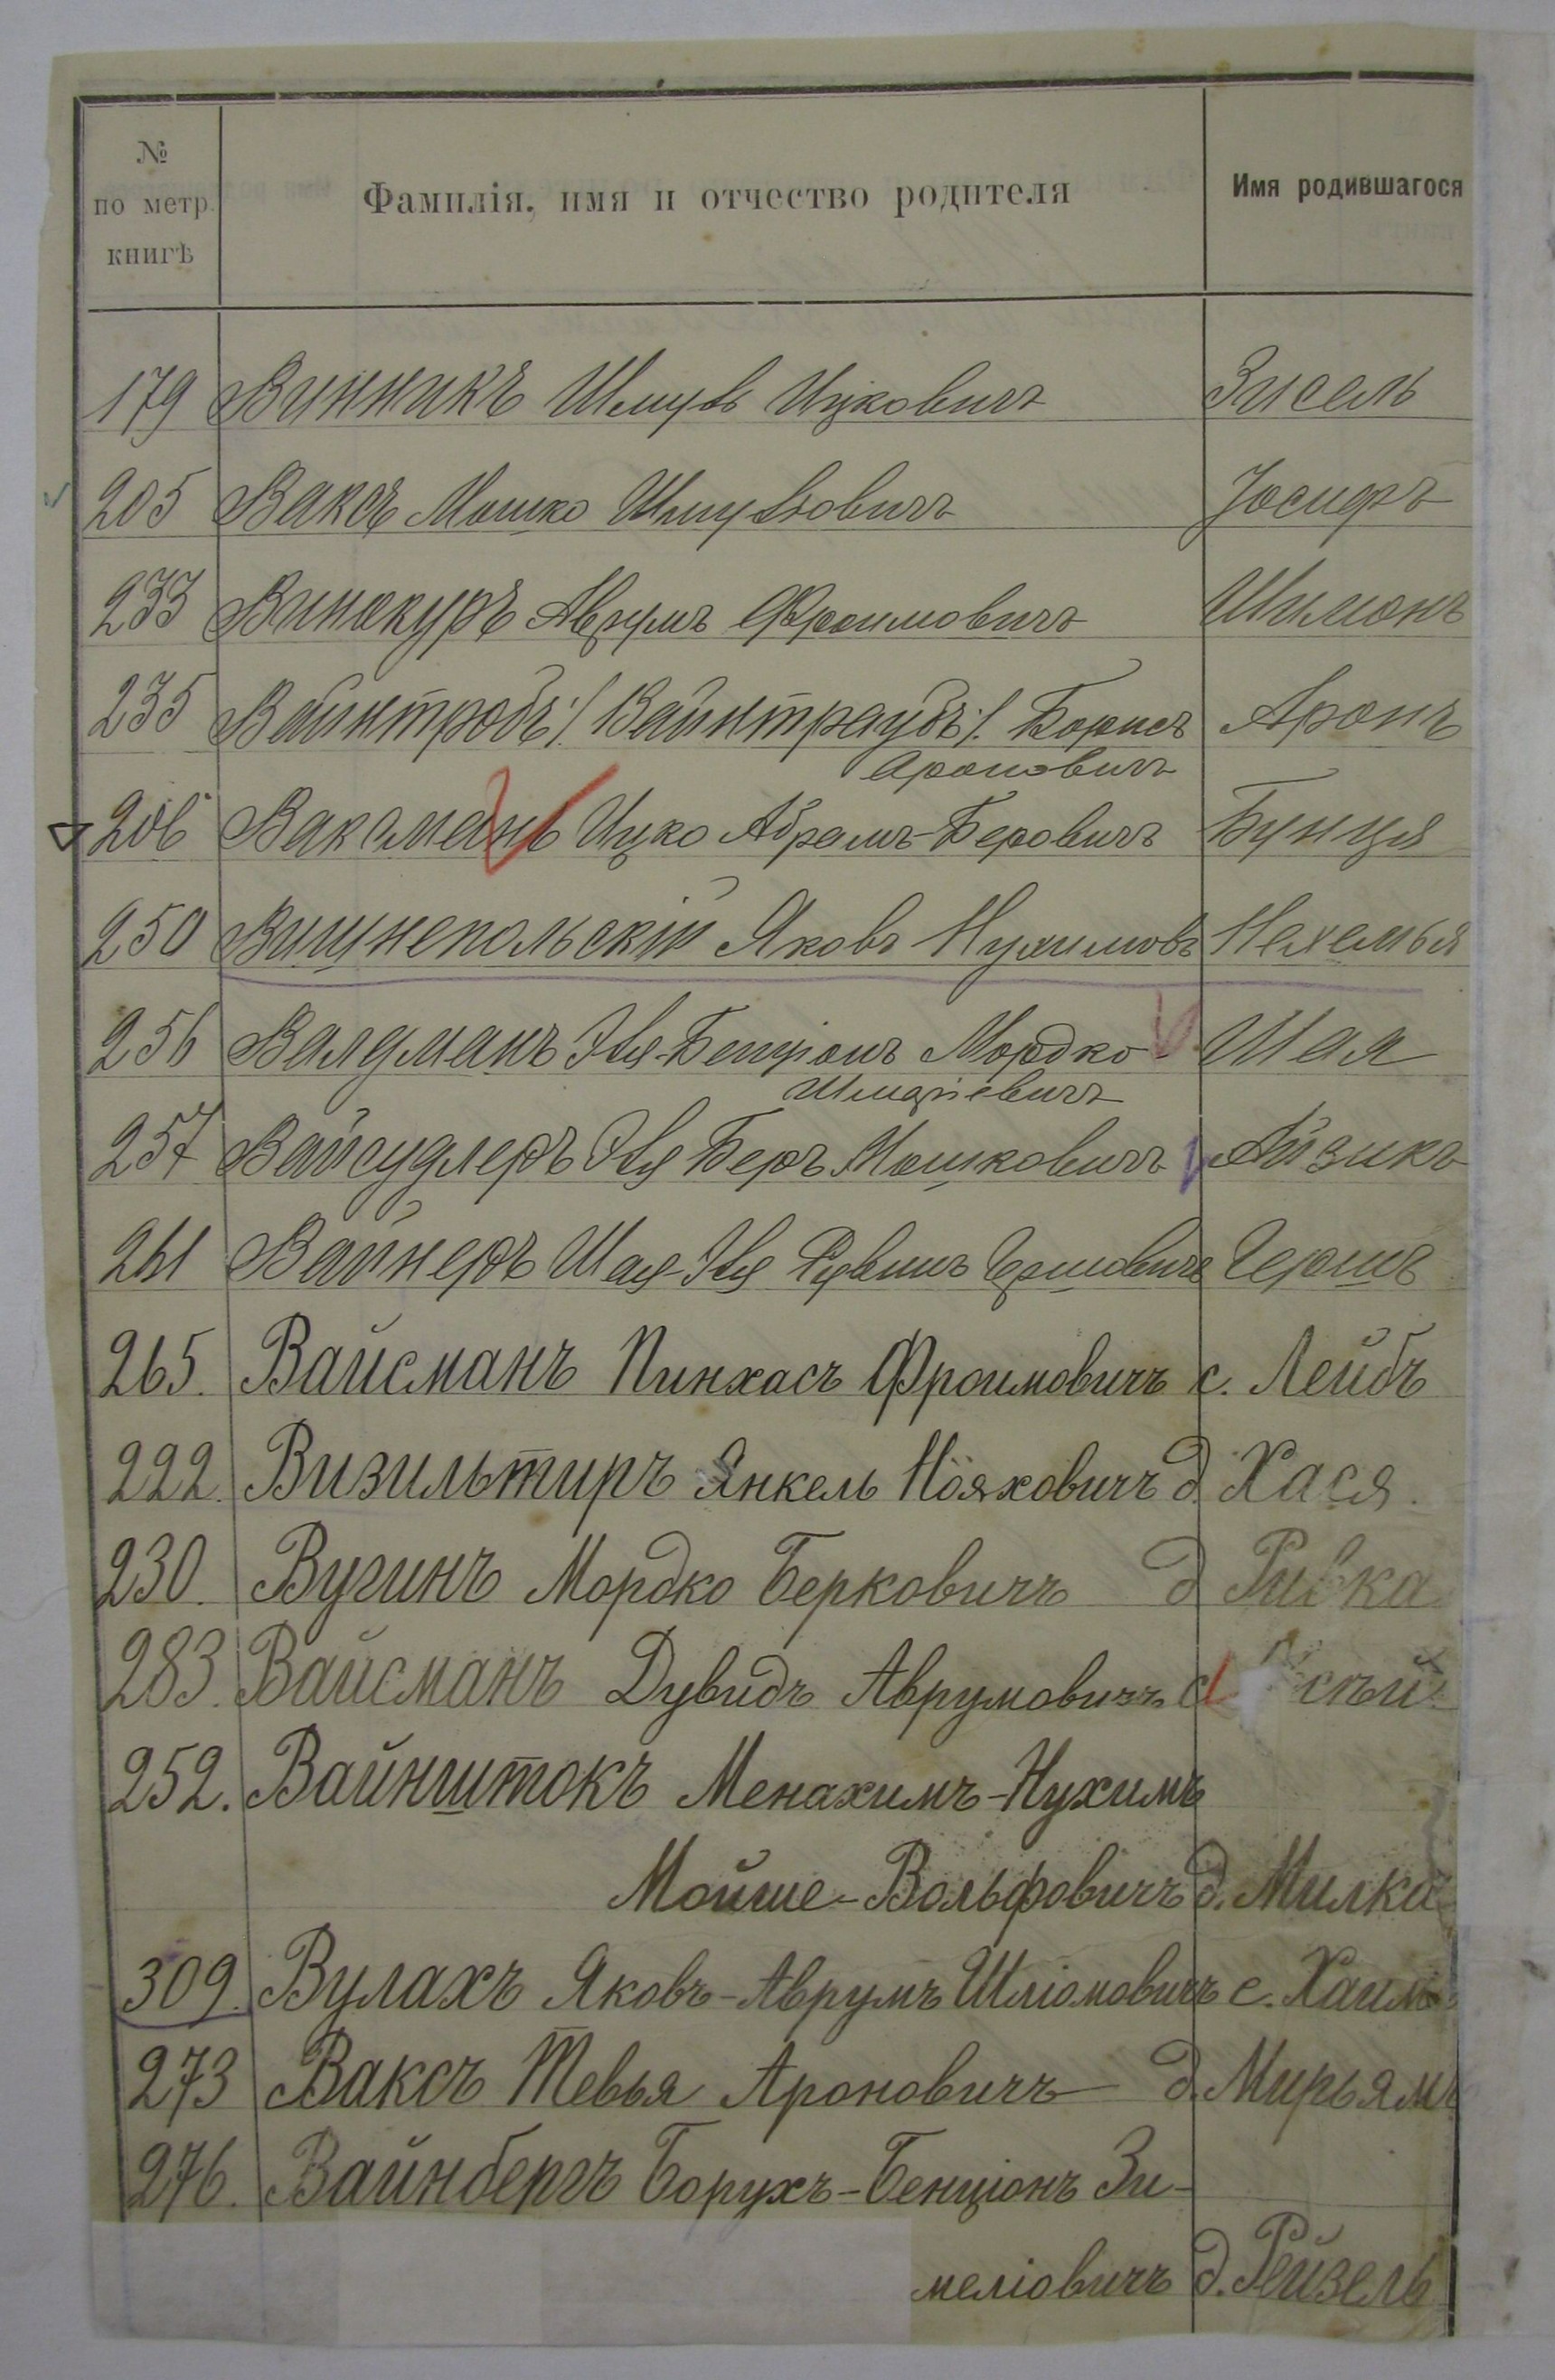 № по метр. книгѣ Фамилія, имя и отчество родителя Имя родившагося
179 Винникъ Шмуль Ицковичъ Зисель
205 Ваксъ Мошко Шмулевичъ Іосифъ
233 Винокуръ Аврумъ Фроимовичъ Шимонъ
235 Вайнтробъ /. Вайнтраубъ ./ Борисъ Аронъ
Ароновичъ
206 Ваксманъ Ицко Абрамъ-Беровичъ Бунця
250 Вишнепольскій Яковъ Нухимовъ Нехемья
256 Валдманъ Эля-Бенціонъ Мордко- Шая
Шмаріевичъ
257 Вайсудлеръ Эля Беръ Мошковичъ Айзикъ
261 Вайнеръ Шая-Эля Рувинъ Гершовичъ Гершъ
265. Вайсманъ Пинхасъ Фроимовичъ с. Лейбъ
222. Визильтиръ Янкель Нояховичъ д. Хася.
230. Вугинъ Мордко Берковичъ д Ривка
283. Вайсманъ Дувидъ Аврумовичъ с
252. Вайнштокъ Менахимъ-Нухимъ
Мойше-Вольфовичъ д. Милка
309. Вулахъ Яковъ-Аврумъ Шліомовичъ с. Хаимъ
273 Ваксъ Тевья Ароновичъ д. Мирьямъ
276. Вайнбергъ Борухъ-Бенціонъ Зи-
меліовичъ д. Рейзель